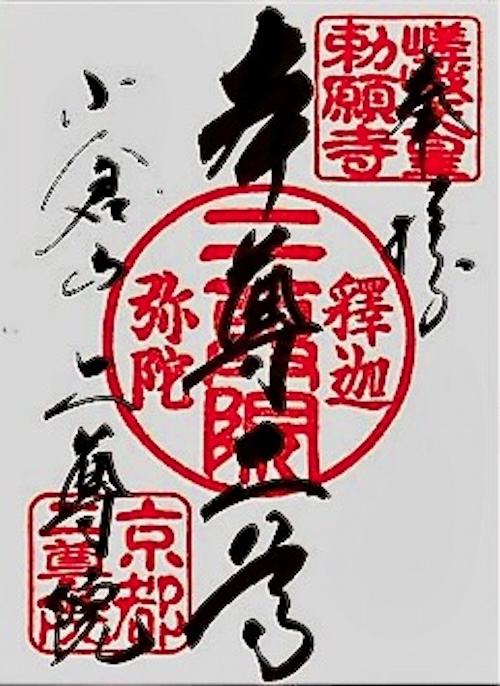 奉拝
本尊二尊
小倉山 二尊院
嵯峨天皇
勅願寺
釋迦
二尊院
弥陀
京都
二尊院